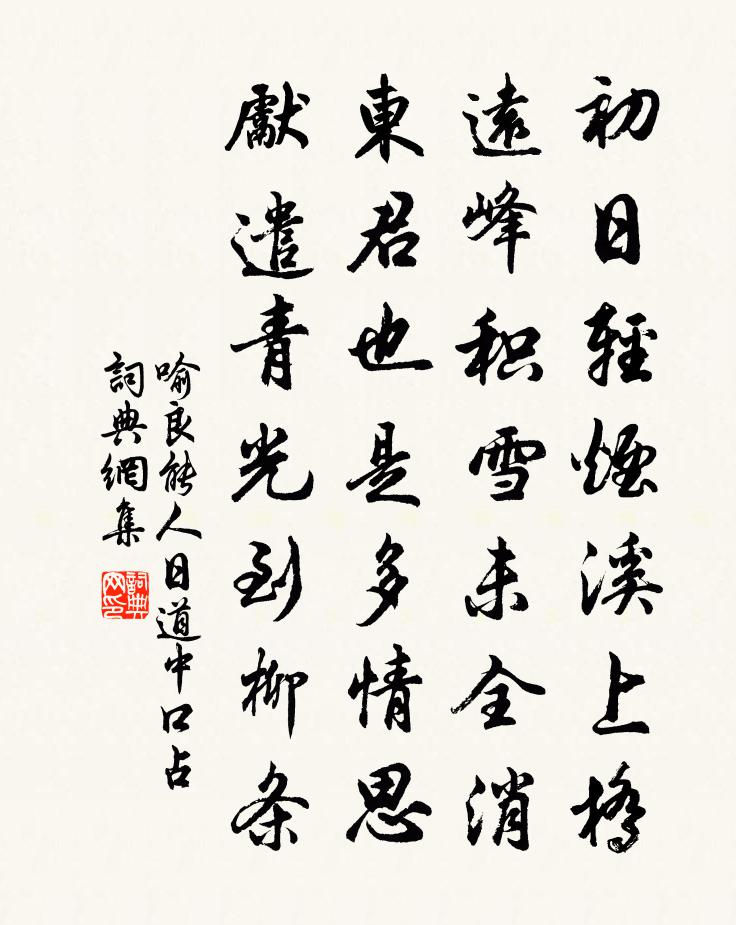 初日輕煙溪上橋
遠峰积雪未全消
東君也是多情思
獻遣青光到柳条
喻良能人日道中口占
詞典網集
詞典网印